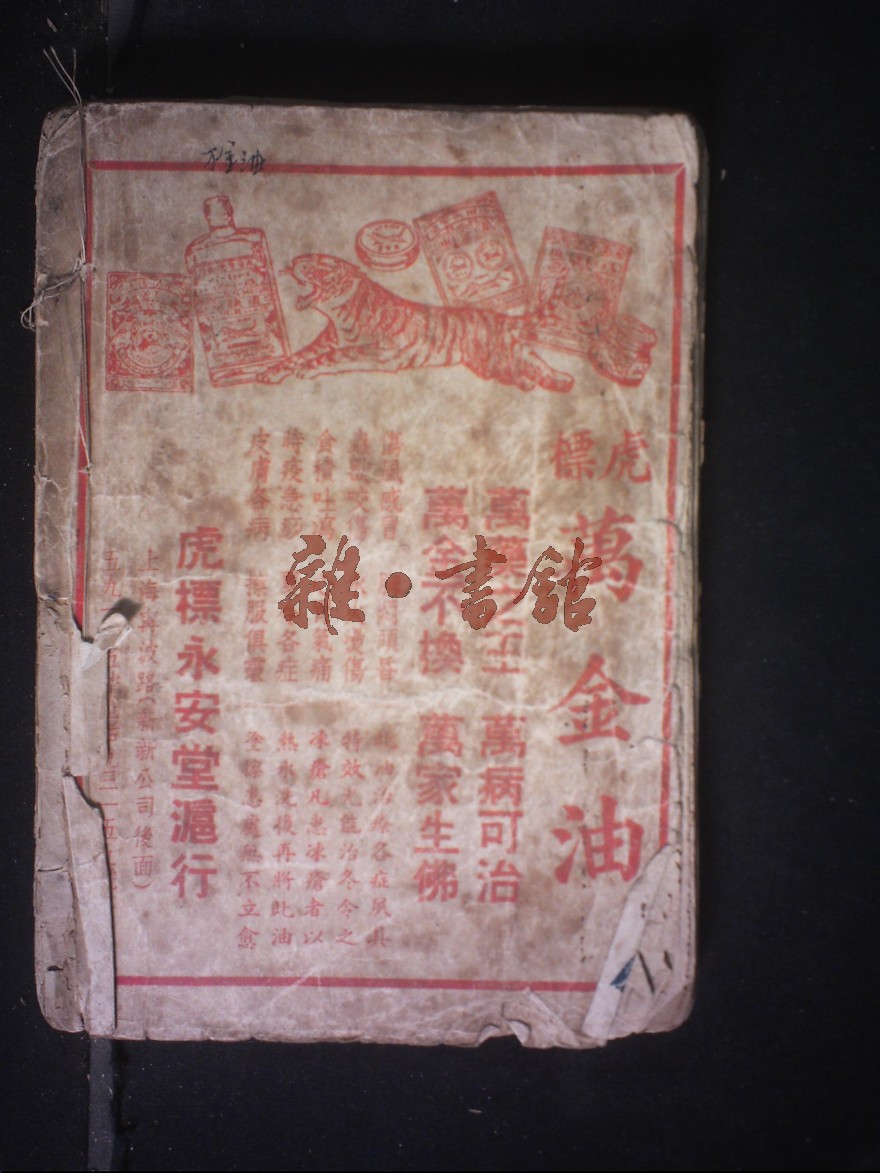 万金油
虎標
萬金油
萬 王 萬病可治
萬金不換 萬家生佛
傷風感冒 頭暈
咬傷 燙傷
食積吐瀉 氣痛
時疫急痧 各症
皮膚各病 搽服俱靈
油治療各症夙具
特效尤能治冬令之
凍瘡凡患凍瘡者以
熱水洗後再將此油
塗擦患處無不立愈
虎標永安堂滬行
上海寧波路(新新公司後面)
雜·書館